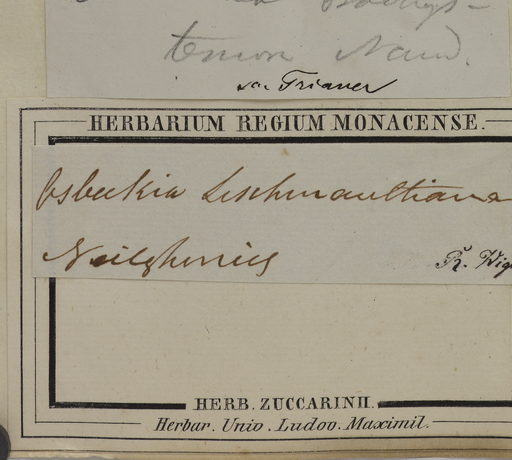 temon Naud.
sec. Trianer
HERBARIUM REGIUM MONACENSE.
Osbeckia Leschenaultiana
Neilgherries
R. Wig
HERB. ZUCCARINII.
Herbar. Univ. Ludov. Maximil.